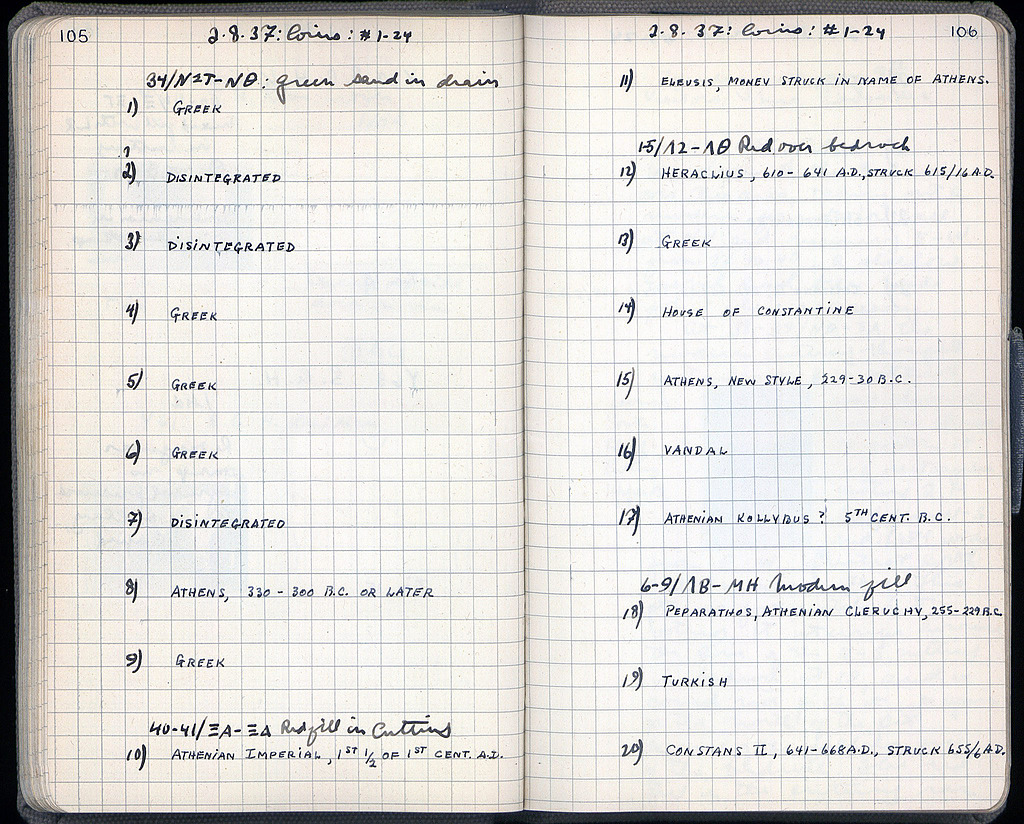 105
2.8.37: Coins: #1-24
34/ΝΣΤ-ΝΘ: green sand in drain
1) GREEK
?
2) DISINTEGRATED
3) DISINTEGRATED
4) GREEK
5) GREEK
6) GREEK
7) DISINTEGRATED
8) ATHENS, 330 - 300 B.C. OR LATER
9) GREEK
40-41/ΞΑ-ΞΔ Red fill in Cutting
10) ATHENIAN IMPERIAL, 1ST 1/2 OF 1ST CENT. A.D.
2.8.37: Coins: #1-24
106
11) ELEUSIS, MONEY STRUCK IN NAME OF ATHENS.
15/ΛΣ-ΛΘ Red over bedrock
12) HERACLIUS, 610 - 641 A.D., STRUCK 615/16 A.D.
13) GREEK
14) HOUSE OF CONSTANTINE
15) ATHENS, NEW STYLE, 229-30 B.C.
16) VANDAL
17) ATHENIAN KOLLYBUS? 5TH CENT. B.C.
6-9/ΛΒ-ΜΗ Modern fill
18) PEPARATHOS, ATHENIAN CLERUCHY, 255-229 B.C.
19) TURKISH
20) CONSTANS II, 641-668 A.D., STRUCK 655/6 A.D.